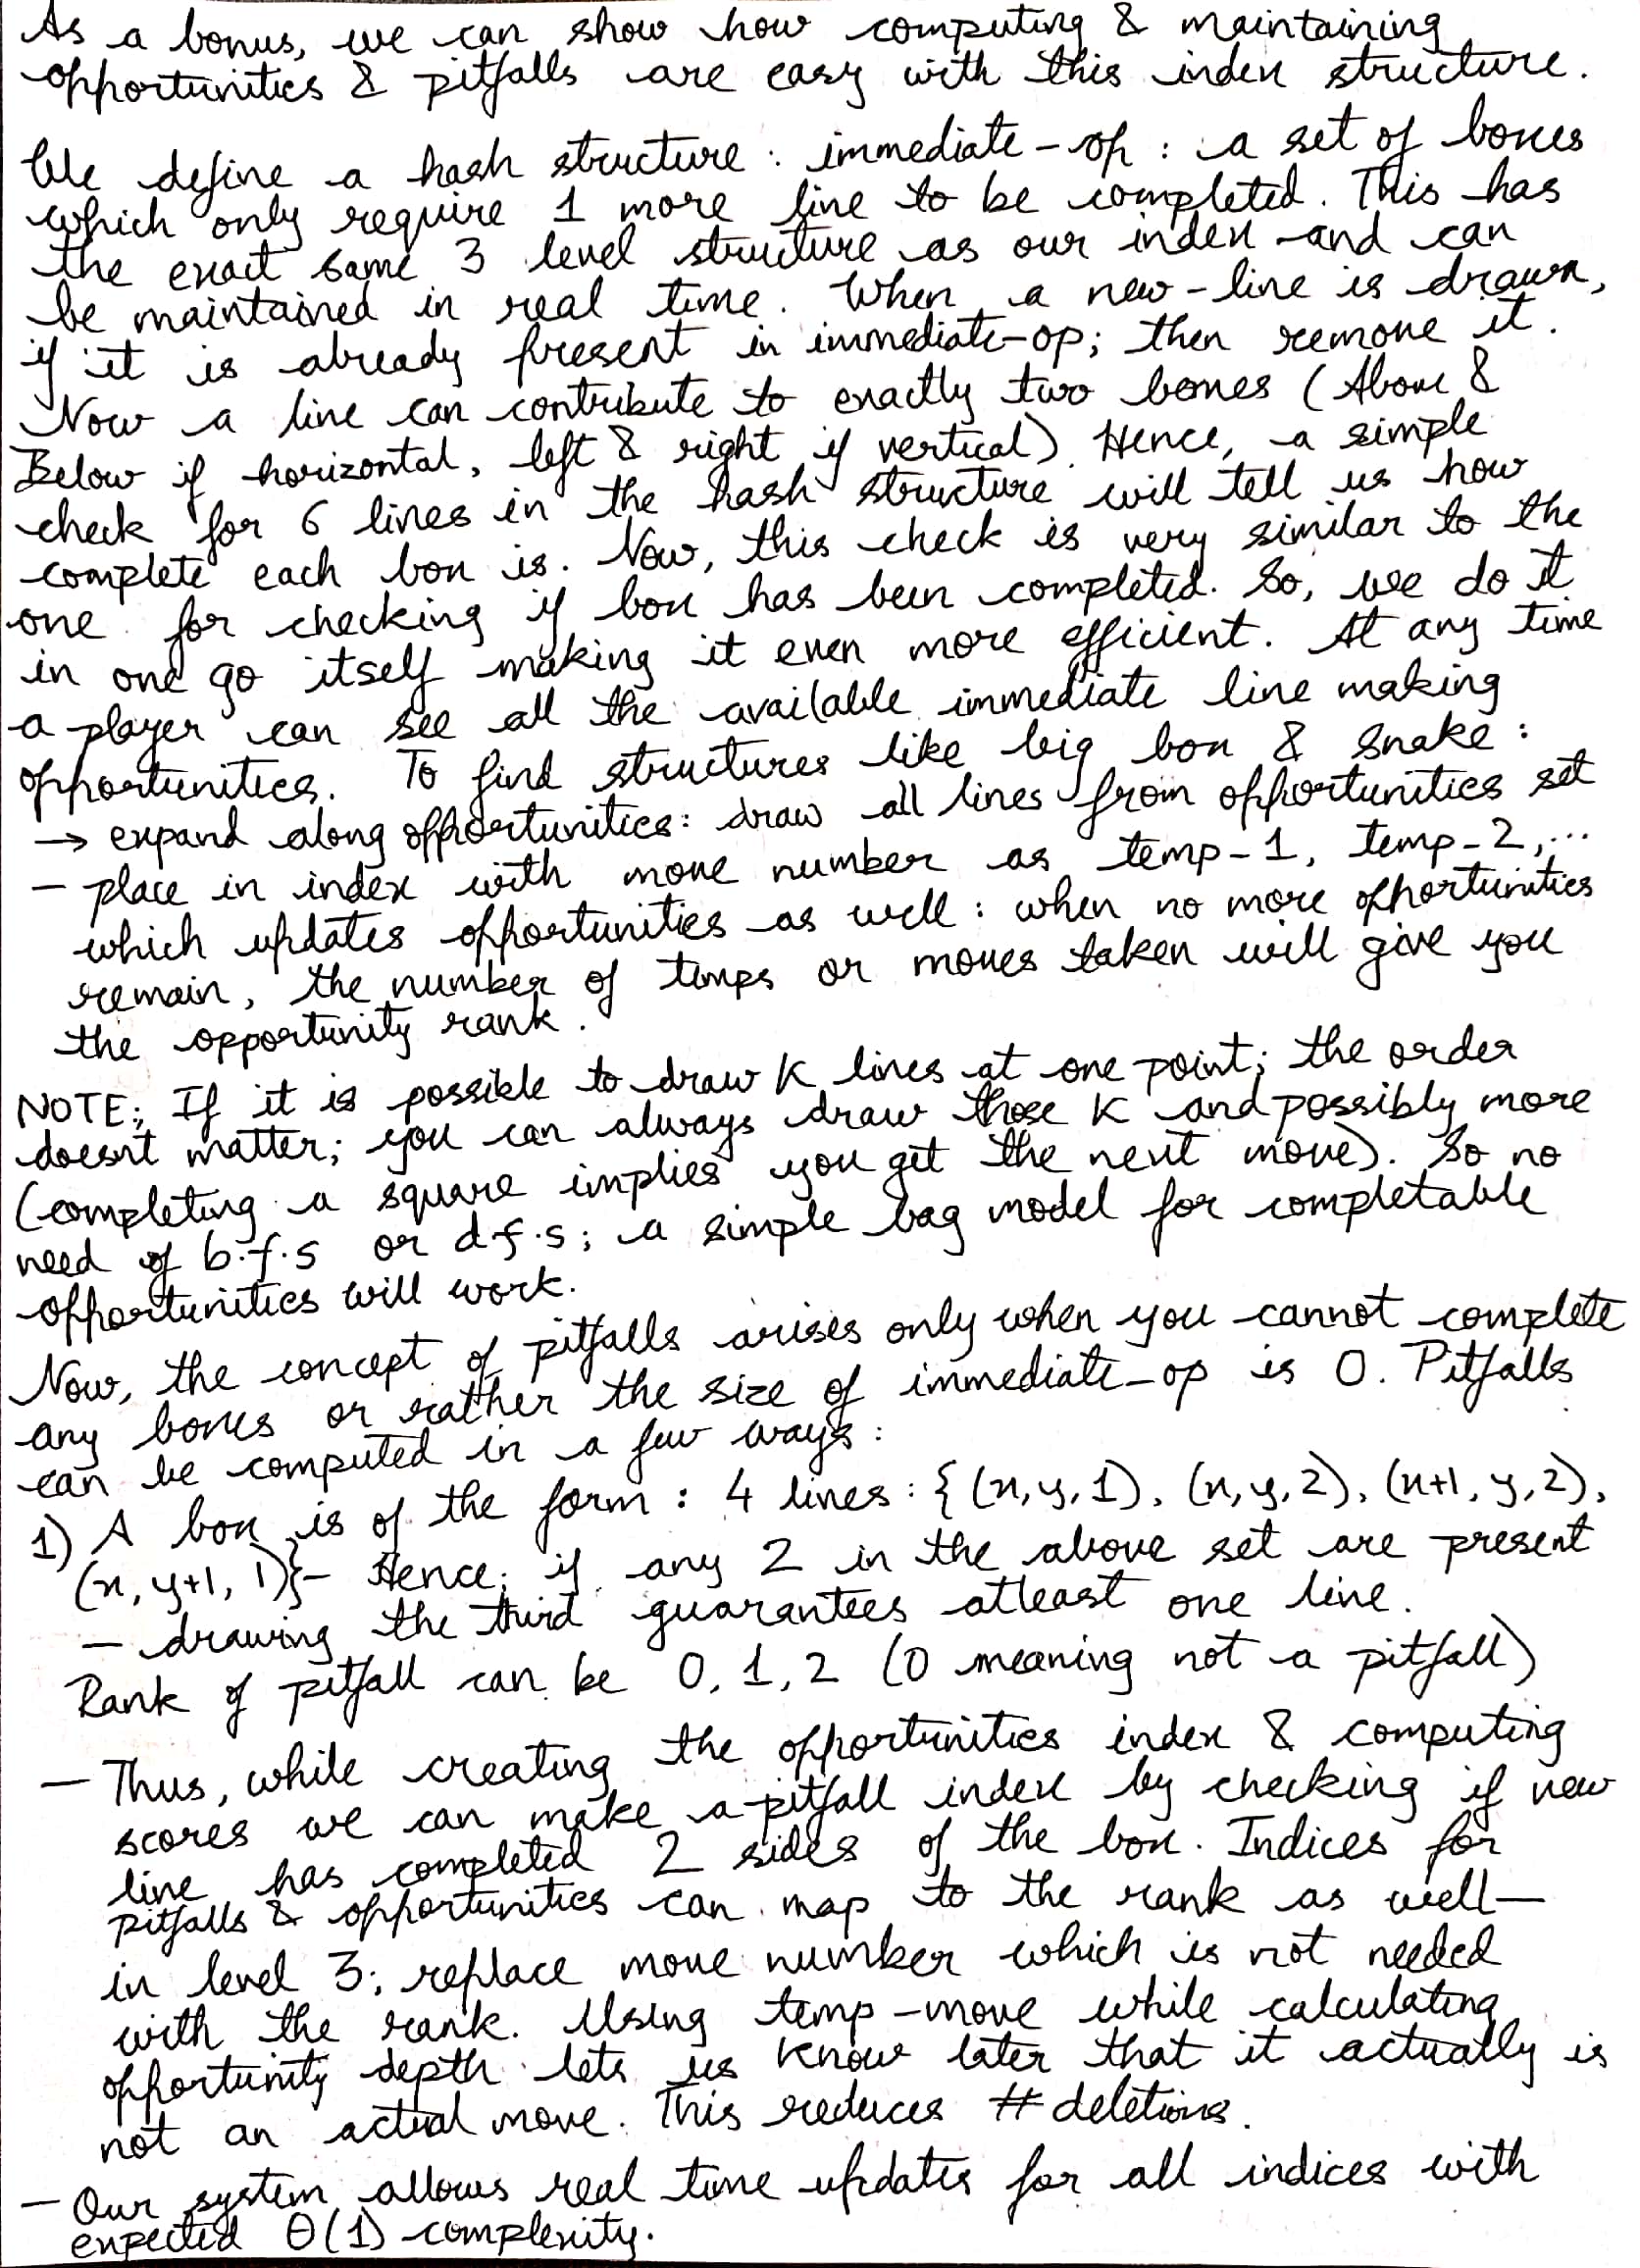 As a bonus, we can show how computing & maintaining
opportunities & pitfalls are easy with this index structure.
We define a hash structure : immediate-op : a set of boxes
which only require 1 more line to be completed. This has
the exact same 3 level structure as our index and can
be maintained in real time. When a new-line is drawn,
if it is already present in immediate-op; then remove it.
Now a line can contribute to exactly two boxes (Above &
Below if horizontal, left & right if vertical). Hence, a simple
check for 6 lines in the hash structure will tell us how
complete each box is. Now, this check is very similar to the
one for checking if box has been completed. So, we do it
in one go itself making it even more efficient. At any time
a player can see all the available immediate line making
opportunities. To find structures like big box & snake :
→ expand along opportunities: draw all lines from opportunities set
- place in index with move number as temp-1, temp-2,...
which updates opportunities as well : when no more opportunities
remain, the number of temps or moves taken will give you
the opportunity rank.
NOTE: If it is possible to draw K lines at one point; the order
doesnt matter; you can always draw those K and possibly more
(completing a square implies you get the next move). So no
need of b.f.s or d.f.s; a simple bag model for completable
opportunities will work.
Now, the concept of pitfalls arises only when you cannot complete
any boxes or rather the size of immediate_op is 0. Pitfalls
can be computed in a few ways:
1) A box is of the form : 4 lines : { (x,y,1), (x,y,2), (x+1,y,2),
(x,y+1,1)}- Hence; if any 2 in the above set are present
- drawing the third guarantees atleast one line.
Rank of pitfall can be 0,1,2 (0 meaning not a pitfall)
- Thus, while creating the opportunities index & computing
scores we can make a pitfall index by checking if new
line has completed 2 sides of the box. Indices for
pitfalls & opportunities can map to the rank as well-
in level 3; replace move number which is not needed
with the rank. Using temp-move while calculating
opportunity depth lets us know later that it actually is
not an actual move. This reduces # deletions.
- Our system allows real time updates for all indices with
expected Θ(1) complexity.